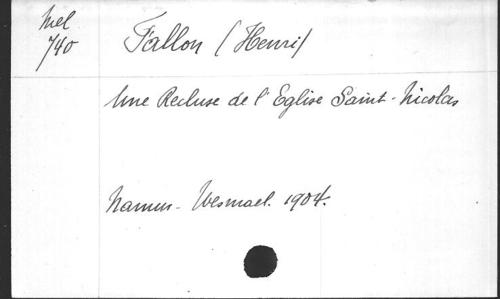 Mel
740
Fallon (Henri)
Une Recluse de l'Eglise Saint-Nicolas
Namur - Wesmael. 1904.